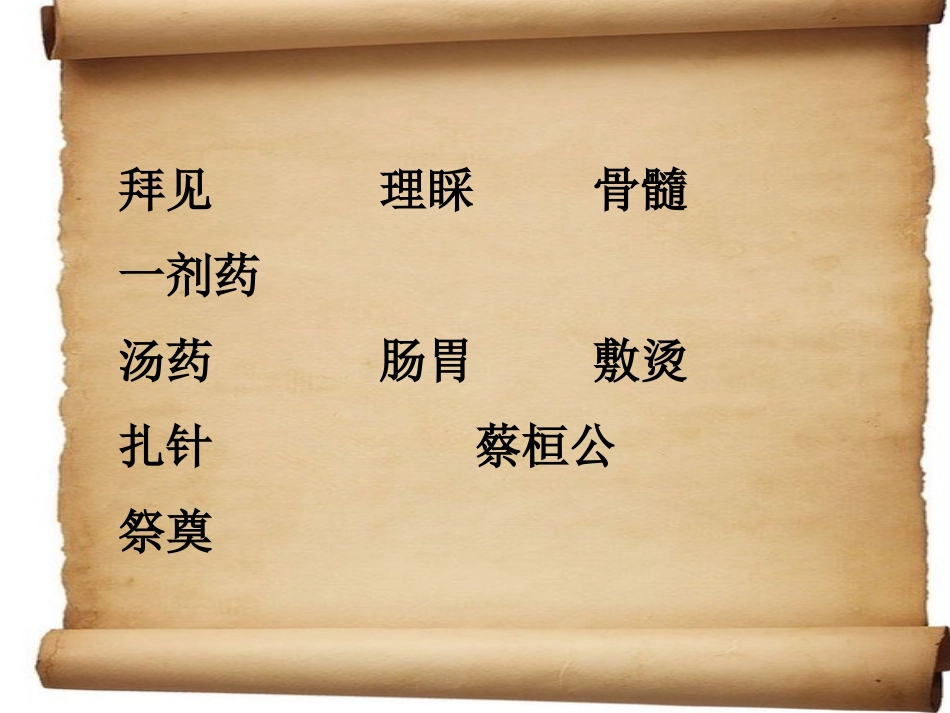 拜见 理睬 骨髓
一剂药
汤药 肠胃 敷烫
扎针 蔡桓公
祭奠